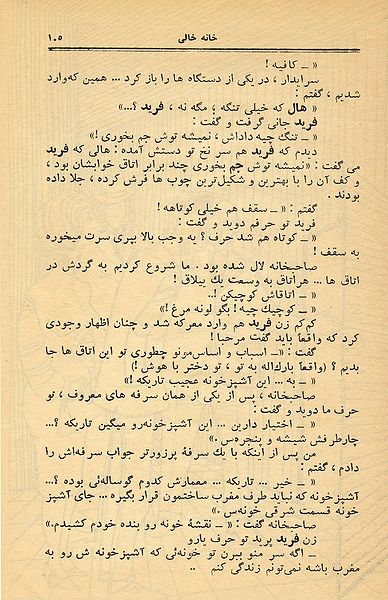 خانه خالی ۱۰۵
« ــ کافیه !
سرایدار ، در یکی از دستگاه ها را باز کرد ... همین که وارد
شدیم ، گفتم :
« هال که خیلی تنگه ، مگه نه ، فرید ؟...»
فرید جانی گرفت و گفت :
« ــ تنگ چیه داداش ، نمیشه توش جم بخوری !»
دیدم که فرید هم سر نخ تو دستش آمده : هالی که فرید
می گفت : «نمیشه توش جم بخوری چند برابر اتاق خوابشان بود ،
و کف آن را با بهترین و شکیل‌ترین چوب ها فرش کرده ، جلا داده
بودند .
گفتم : «ــ سقف هم خیلی کوتاهه !
فرید تو حرفم دوید و گفت :
« ــ کوتاه هم شد حرف ؟ یه وجب بالا بپری سرت میخوره
به سقف !
صاحبخانه لال شده بود . ما شروع کردیم به گردش در
اتاق ها ... هر اتاق به وسعت یك ییلاق !
« ــ اتاقاش کوچیکن !..
« ــ کوچیك چیه ! بگو لونه مرغ !»
کم کم زن فرید هم وارد معرکه شد و چنان اظهار وجودی
کرد که واقعاً باید گفت مرحبا !
گفت : «ــ اسباب و اساس‌مونو چطوری تو این اتاق ها جا
بدیم ؟ (واقعاً بارك‌اله به تو ، تو دختر با هوش !)
« ــ به ... این آشپزخونه عجیب تاریکه !»
صاحبخانه ، پس از یکی از همان سرفه های معروف ، تو
حرف ما دوید و گفت :
« ــ اختیار دارین ... این آشپزخونه‌رو میگین تاریکه ؟...
چارطرفش شیشه و پنجره‌س .»
من پس از اینکه با یك سرفهٔ پرزورتر جواب سرفه‌اش را
دادم ، گفتم :
« ــ خیر ... تاریکه ... معمارش کدوم گوساله‌ئی بوده ؟...
آشپزخونه که نباید طرف مغرب ساختمون قرار بگیره ... جای آشپز
خونه قسمت شرقی خونه‌س .»
صاحبخانه گفت : «ــ نقشهٔ خونه رو بنده خودم کشیدم.»
زن فرید پرید تو حرف یارو
ــ اگه سر منو ببرن تو خونه‌ئی که آشپزخونه ش رو به
مغرب باشه نمی‌تونم زندگی کنم ..